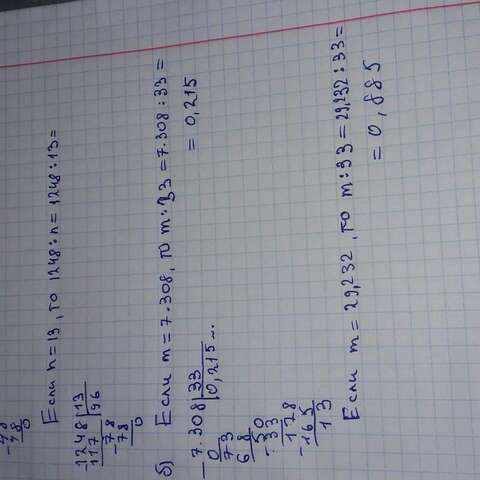 -78
78
0
Если n = 13, то 1248 : n = 1248 : 13 =
-1248 | 13
117 | 96
-78
78
0
б) Если m = 7.308, то m : 33 = 7.308 : 33 =
= 0,215
- 7.308 | 33
0 | 0,215...
73
68
50
33
178
-165
13
Если m = 29,232, то m : 33 = 29,232 : 33 =
= 0,885